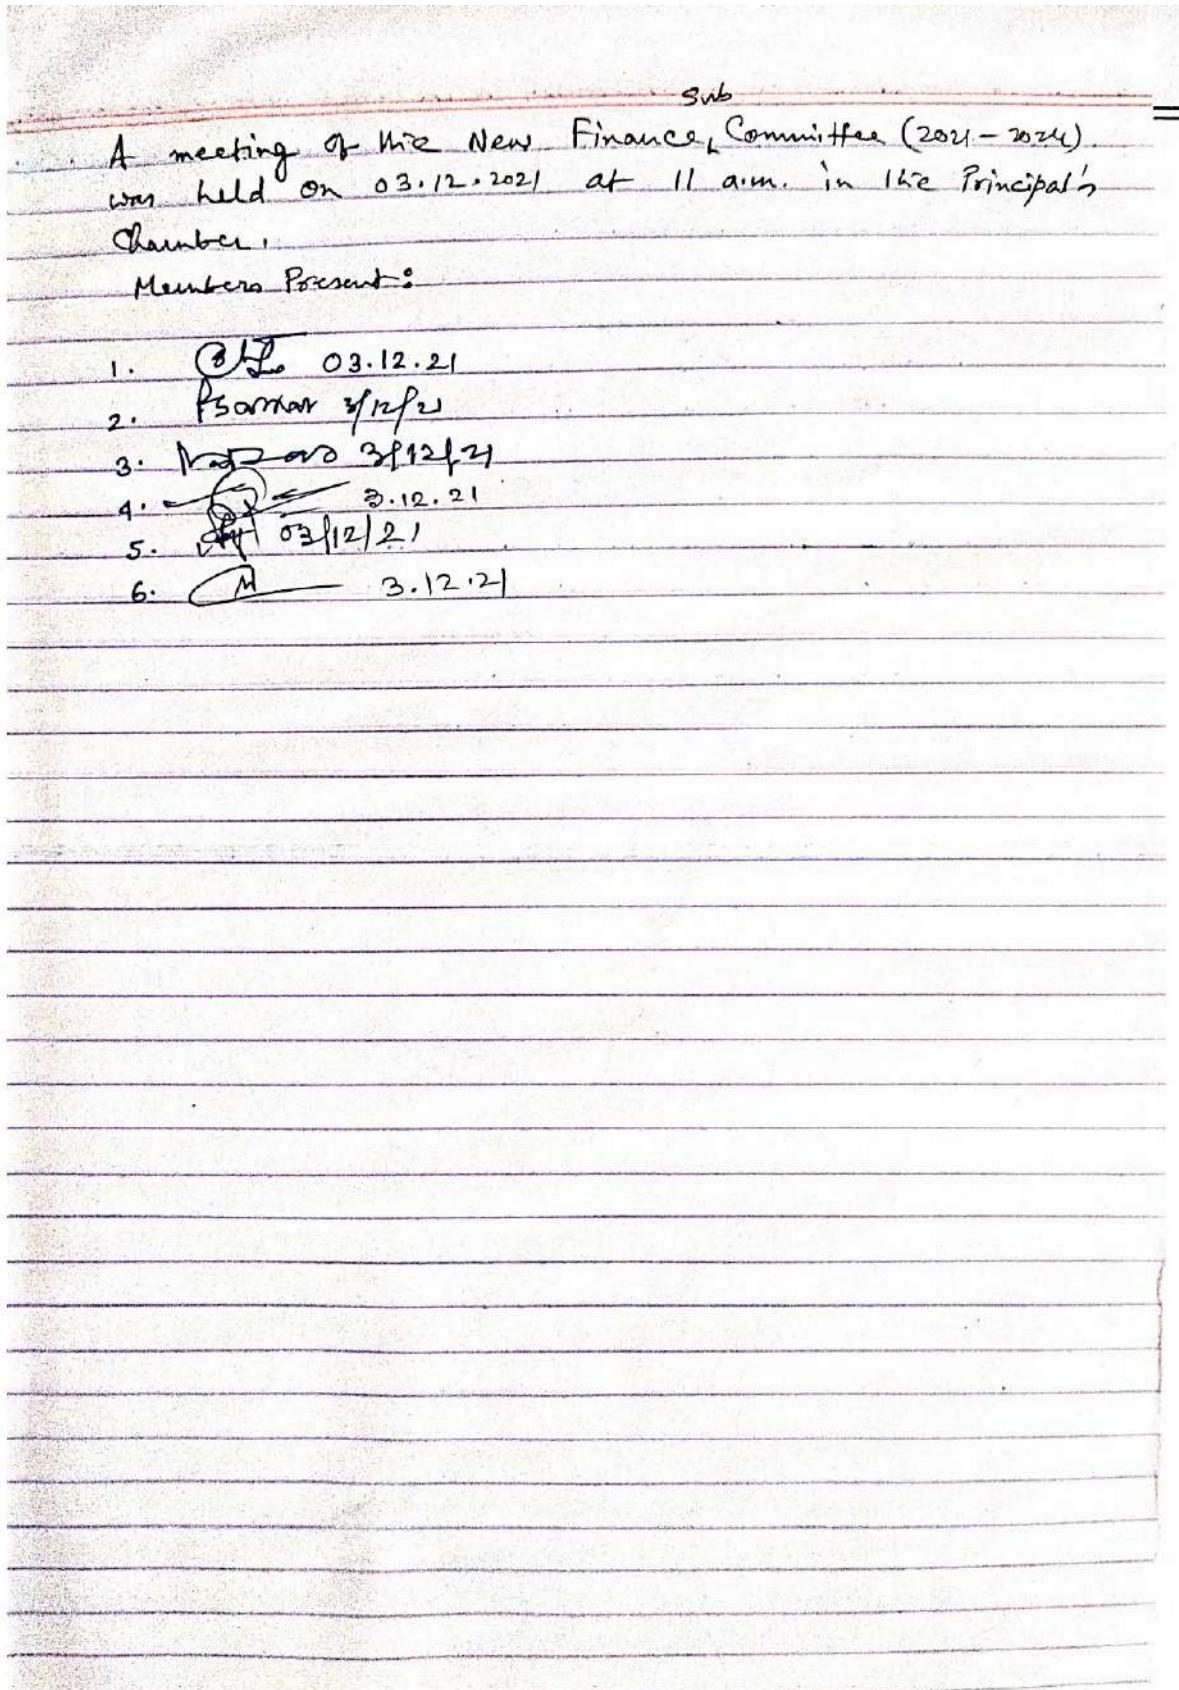 Sub
A meeting of the New Finance, Committee (2021-2024).
was held on 03.12.2021 at 11 a.m. in the Principal's
Chamber.
Members Present:
1. 03.12.21
2. 3/12/21
3. 3/12/21
4. 3.12.21
5. 03/12/21
6. 3.12.21